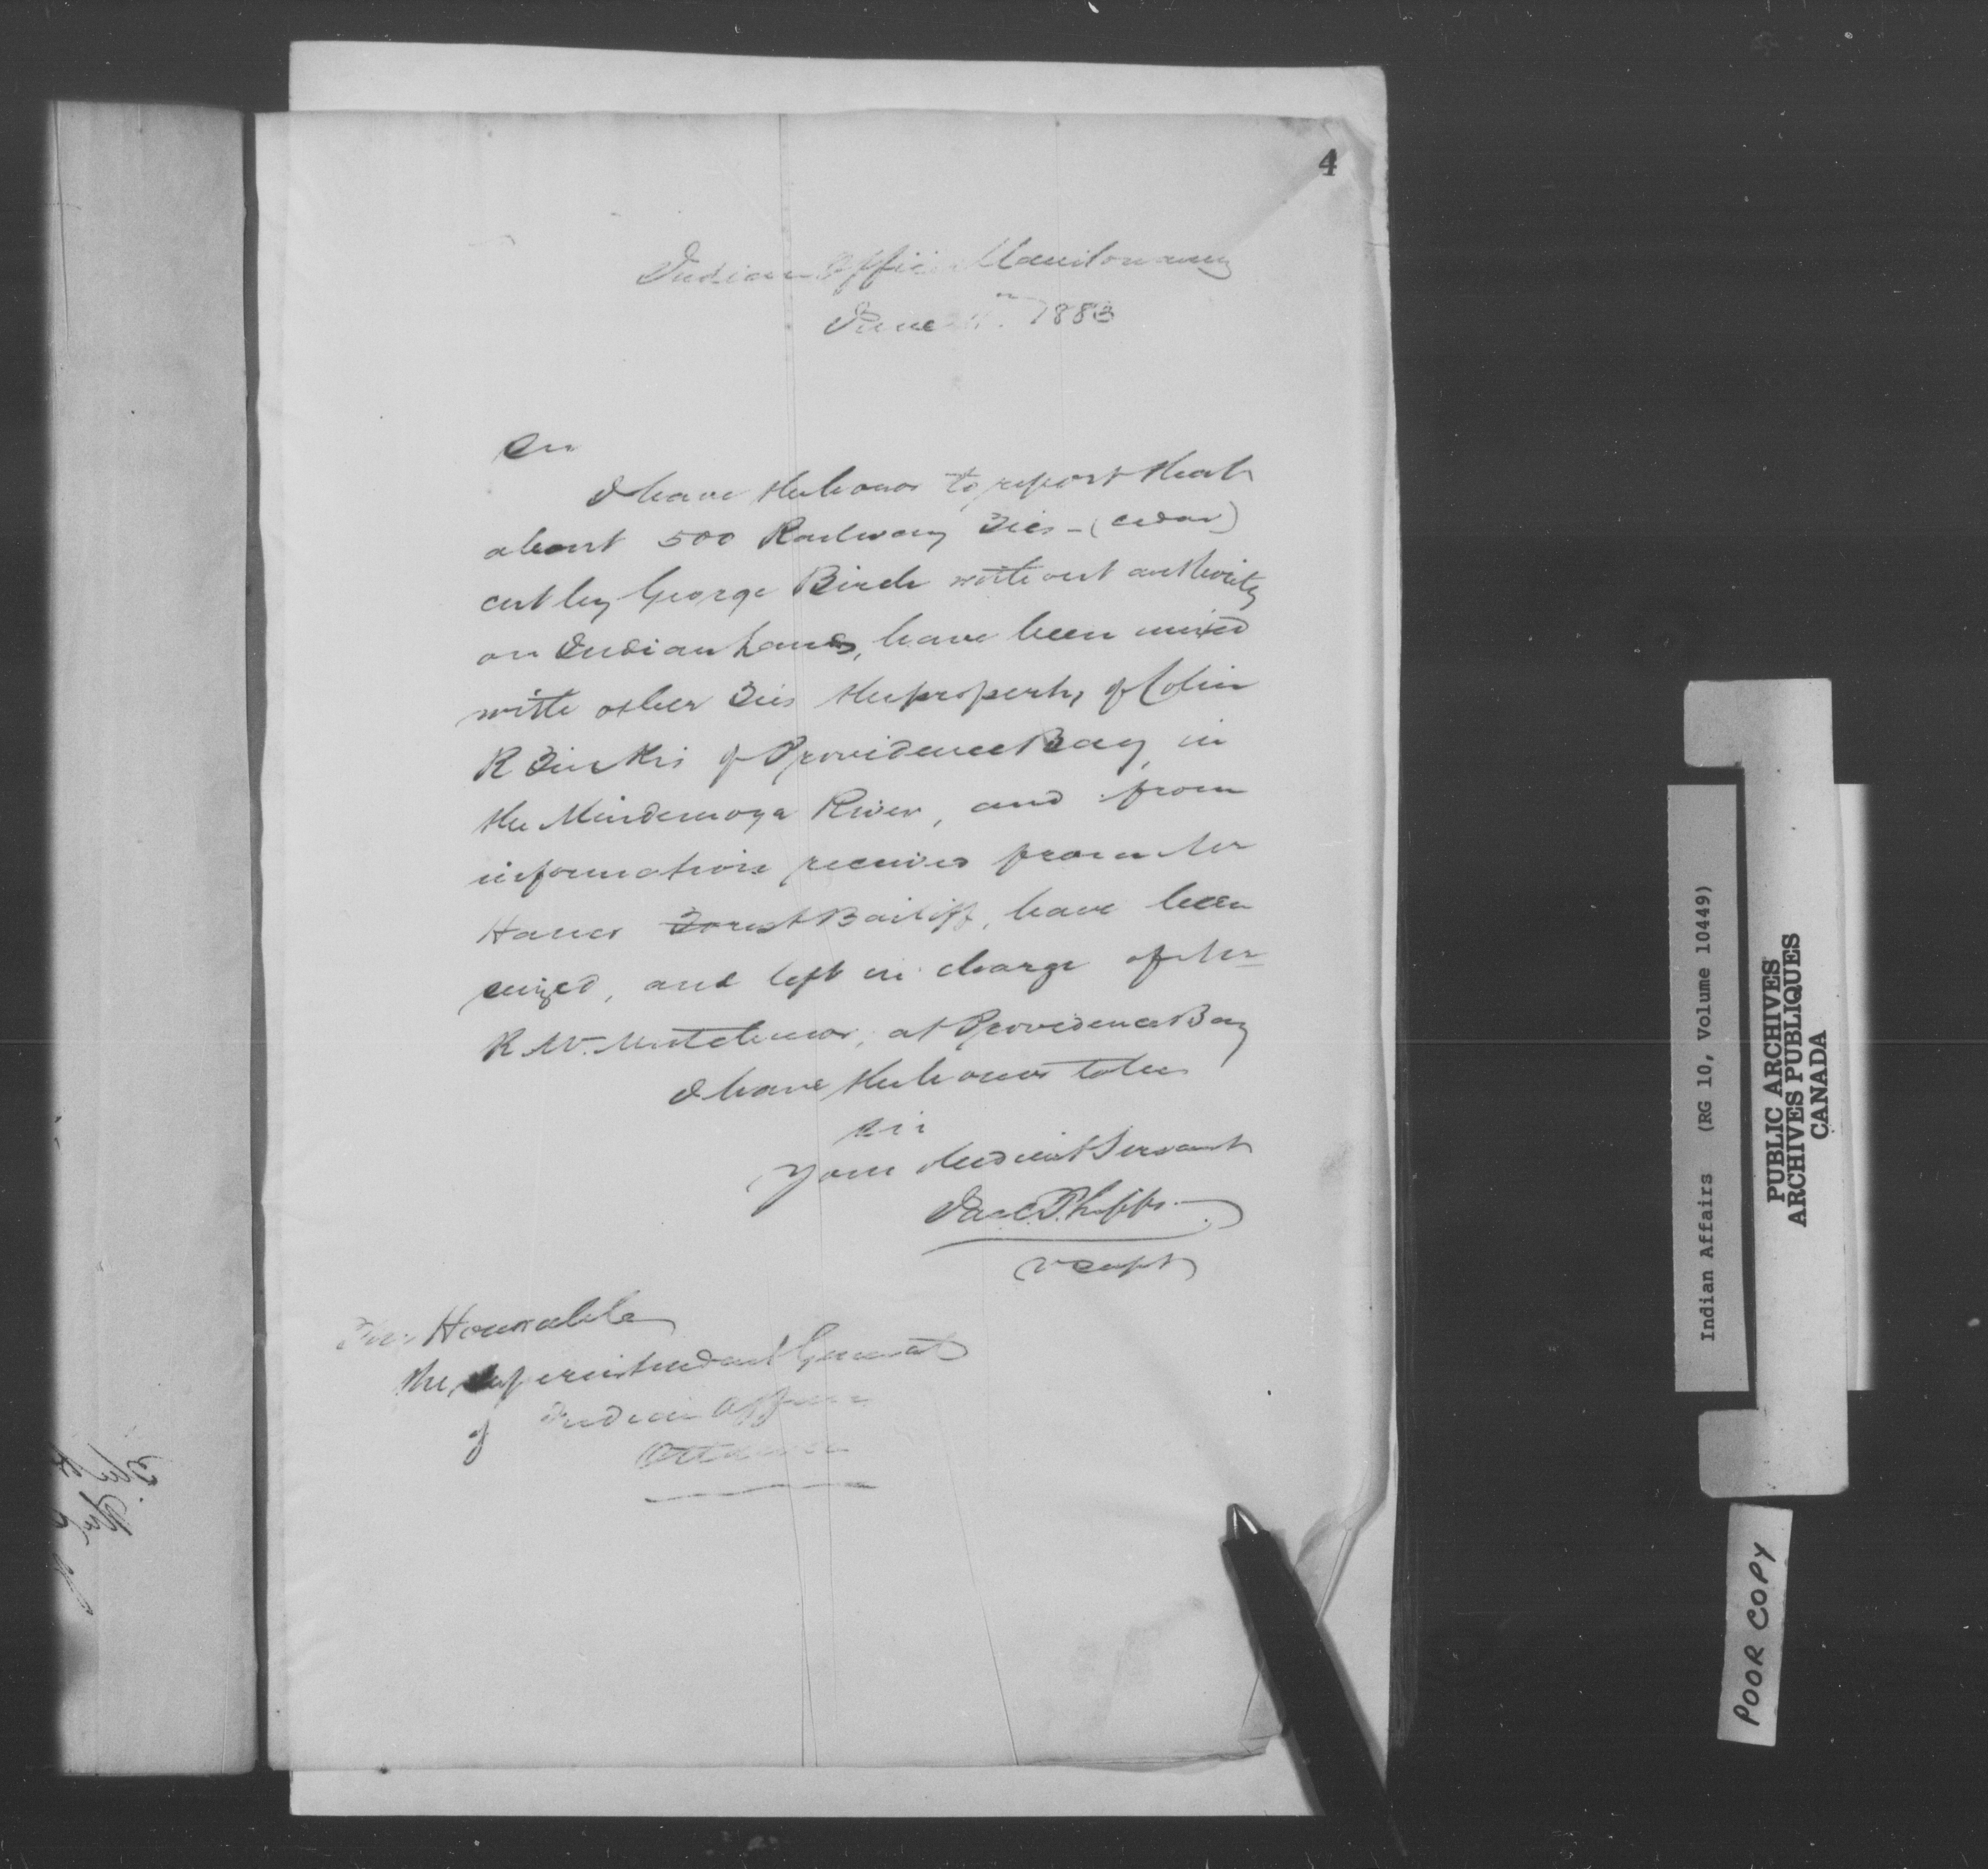 4
Indian Office Manitowaning
June 1883
Sir
I have the honor to report that
about 500 Railway Ties - (cedar)
cut by George Birch without authority
on Indian Lands, have been mixed
with other Ties the property of Colin
R of Providence Bay, in
the Mindemoya River, and from
information received from Mr
Forest Bailiff, have been
seized, and left in charge of Mr
R. at Providence Bay
I have the honor to be
Sir
Your obedient Servant
Jas. C. Phipps
V Supt
The Honorable
the Superintendent General
of Indian Affairs
Ottawa
Indian Affairs (RG 10, Volume 10449)
PUBLIC ARCHIVES
ARCHIVES PUBLIQUES
CANADA
POOR COPY